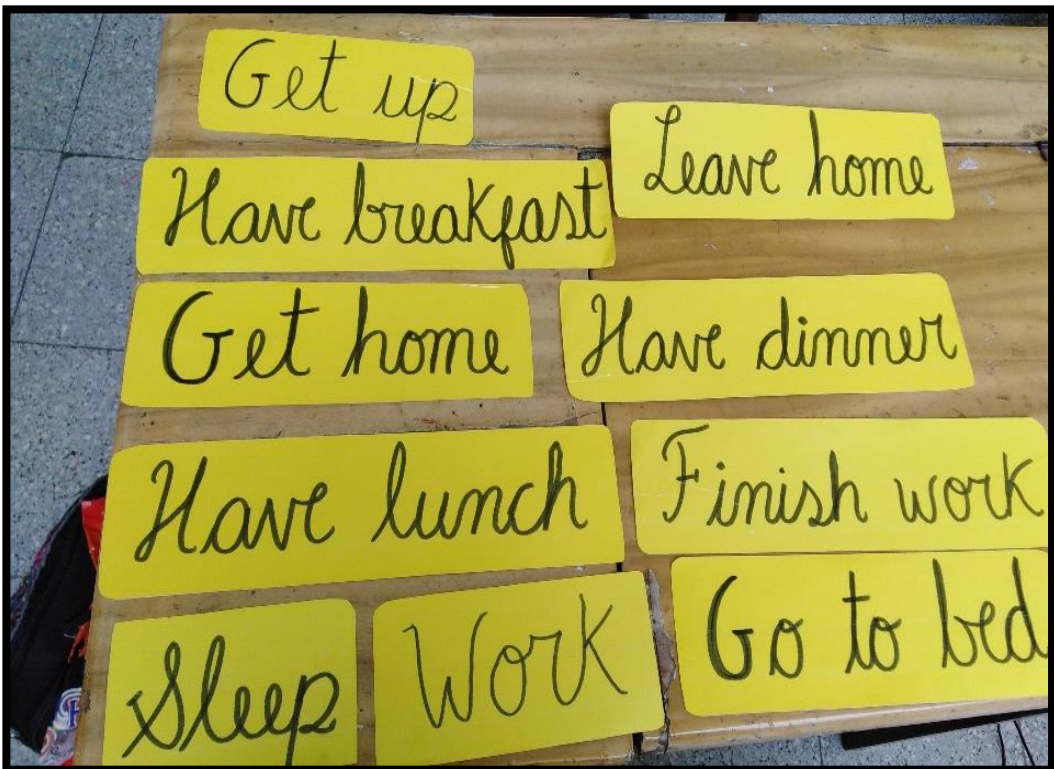 Get up
Leave home
Have breakfast
Get home
Have dinner
Have lunch
Finish work
Sleep
Work
Go to bed